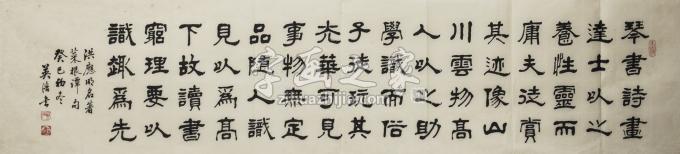 琴書詩畫
達士以之
養性靈而
庸夫徒賞
其迹像山
川雲物高
人以之助
學識而俗
子徒玩其
光華可見
事物無定
品隨人識
見以為高
下故讀書
窮理要以
識趣為先
洪應明名著
菜根譚句
癸巳初冬